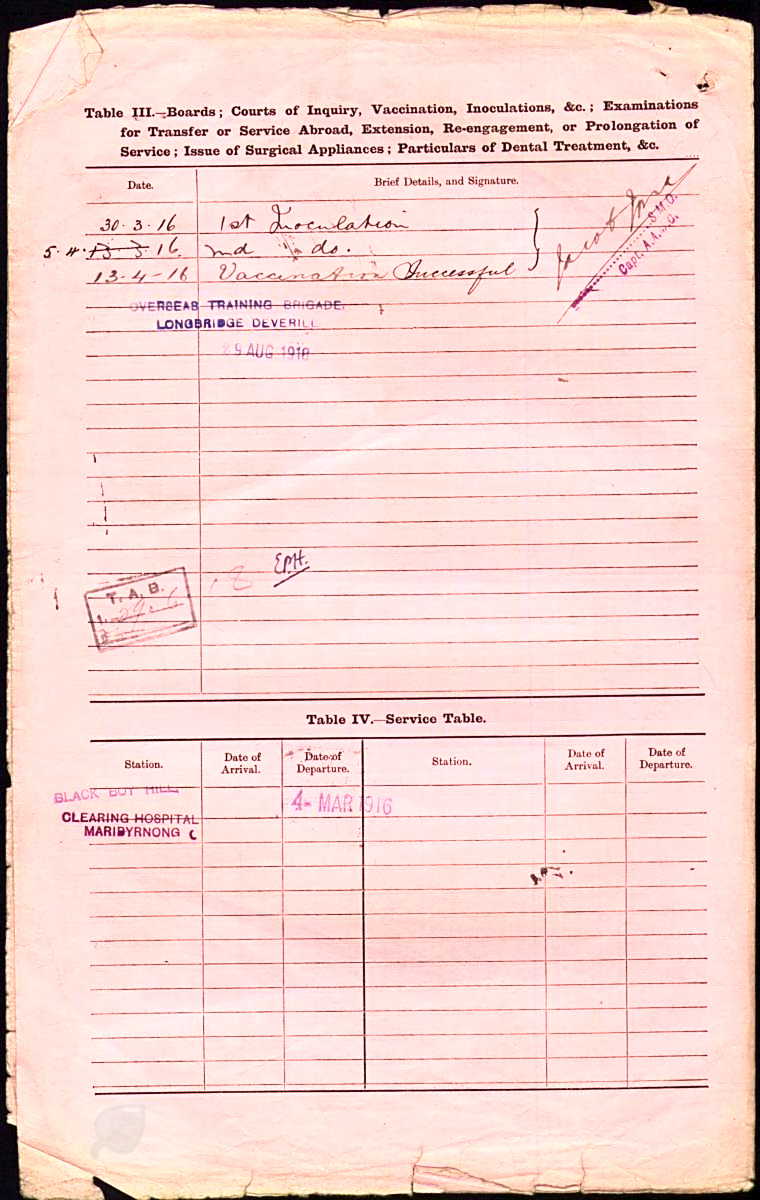 Table III.—Boards; Courts of Inquiry, Vaccination, Inoculations, &c.; Examinations
for Transfer or Service Abroad, Extension, Re-engagement, or Prolongation of
Service; Issue of Surgical Appliances; Particulars of Dental Treatment, &c.
Date. Brief Details, and Signature.
30·3·16 1st Inoculation
5·4·16 2nd do.
13-4-16 Vaccination Successful
S.M.O.
Capt. A.A.M.C.
OVERSEAS TRAINING BRIGADE.
LONGBRIDGE DEVERILL
29 AUG 1918
E.P.H.
T. A. B.
1.
2
Table IV.—Service Table.
Station. Date of Arrival. Date of Departure. Station. Date of Arrival. Date of Departure.
BLACK BOY HILL
4- MAR 1916
CLEARING HOSPITAL
MARIBYRNONG